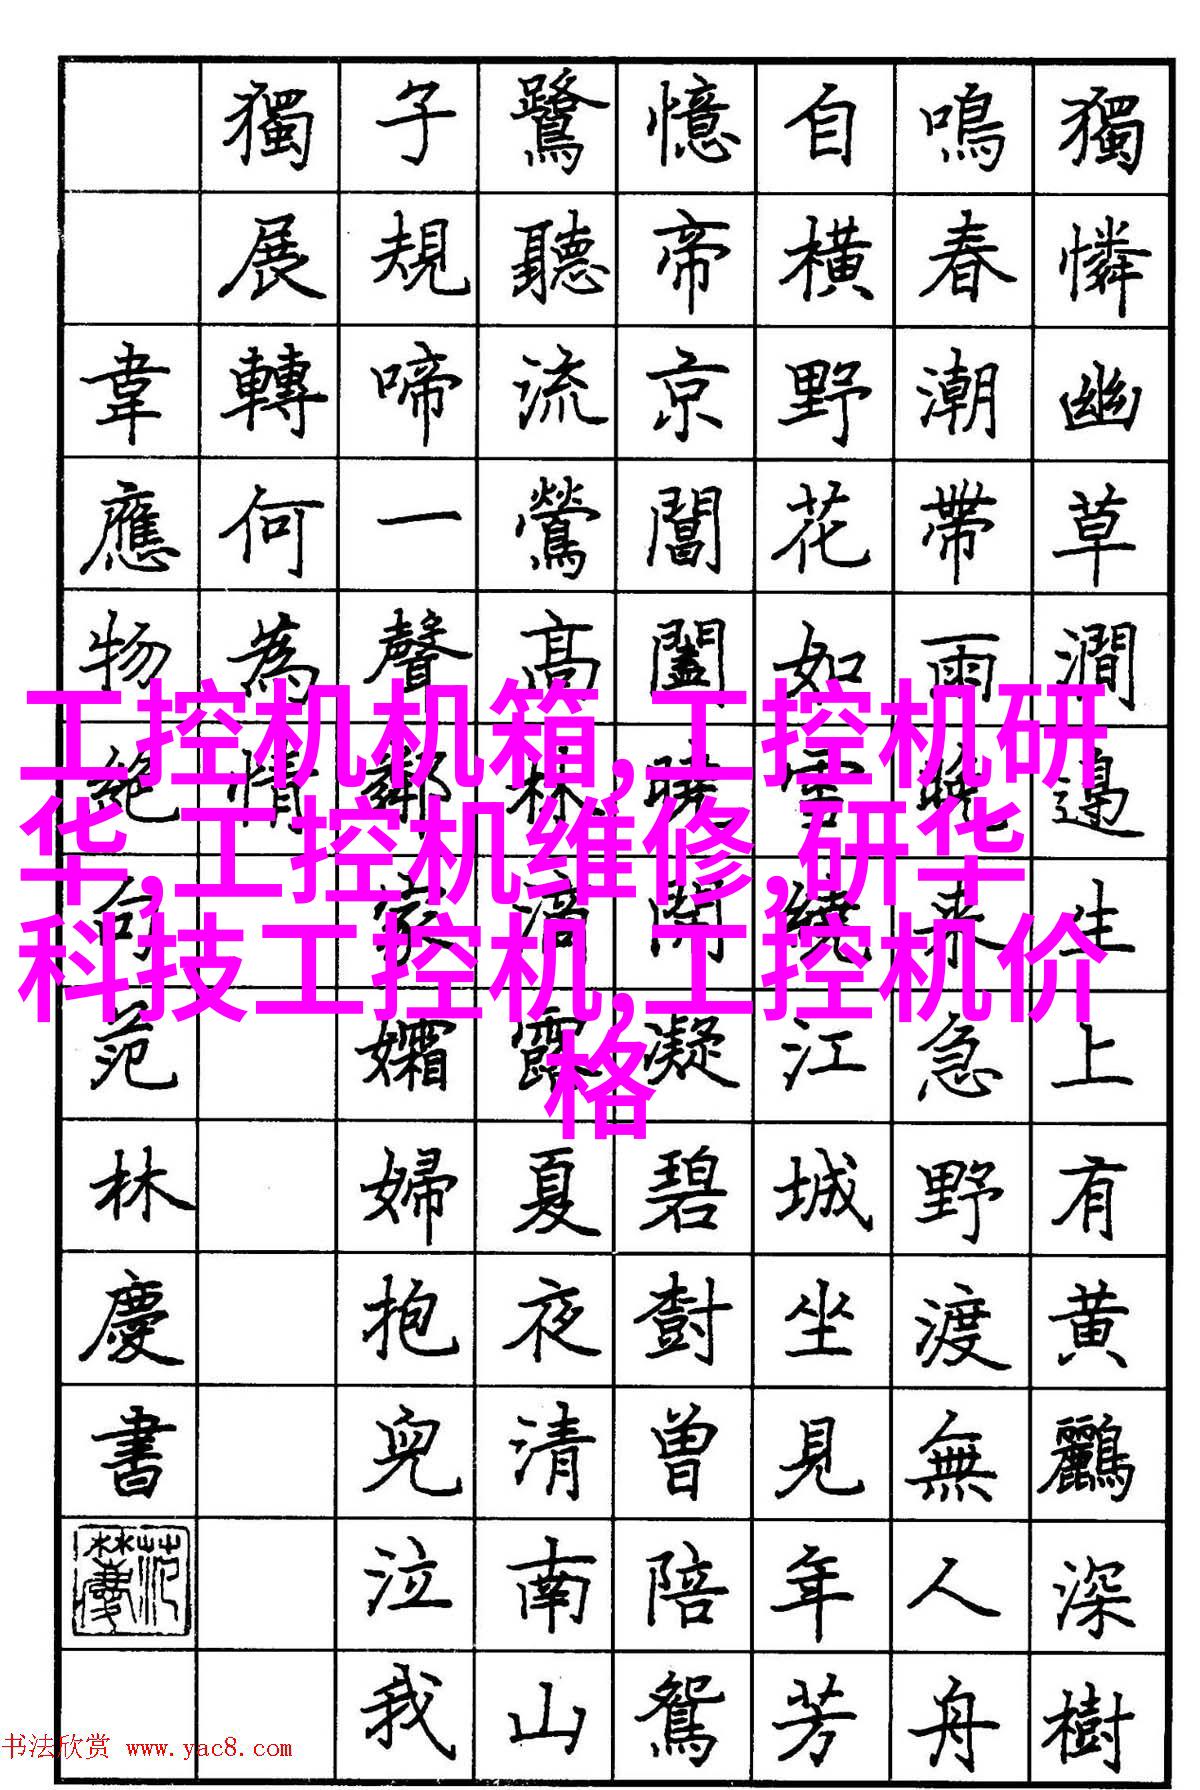 獨憐幽草澗邊生上有黃鸝深樹
鳴春潮帶雨晚来急野渡無人舟
自橫野花如雪繞江城坐見年芳
憶帝京閶闔曉開凝碧樹曾陪鴛
鷺聽流鶯高林滴露夏夜清南山
子規啼一聲鄰家孀婦抱兒泣我
獨展轉何為情
韋應物絕句范林慶書
工控机机箱,工控机研
华,工控机维修,研华
科技工控机,工控机价
格
书法欣赏 www.yac8.com